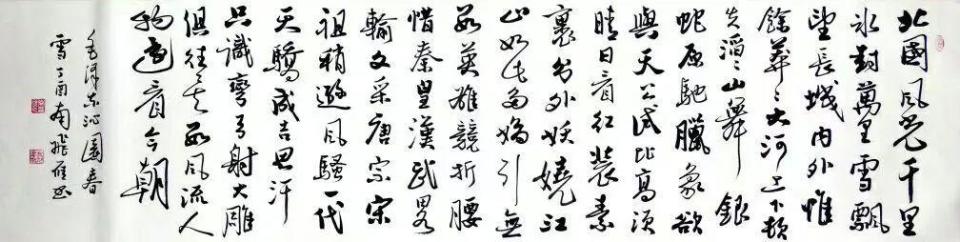 北國風光千里
冰封萬里雪飄
望長城內外惟
餘莽〻大河上下頓
失滔〻山舞銀
蛇原馳臘象欲
與天公試比高須
晴日看紅裝素
裹分外妖嬈江
山如此多嬌引無
數英雄競折腰
惜秦皇漢武略
輸文采唐宗宋
祖稍遜風騷一代
天驕成吉思汗
只識彎弓射大雕
俱往矣數風流人
物還看今朝
毛澤東沁園春
雪丁酉南飛雁書